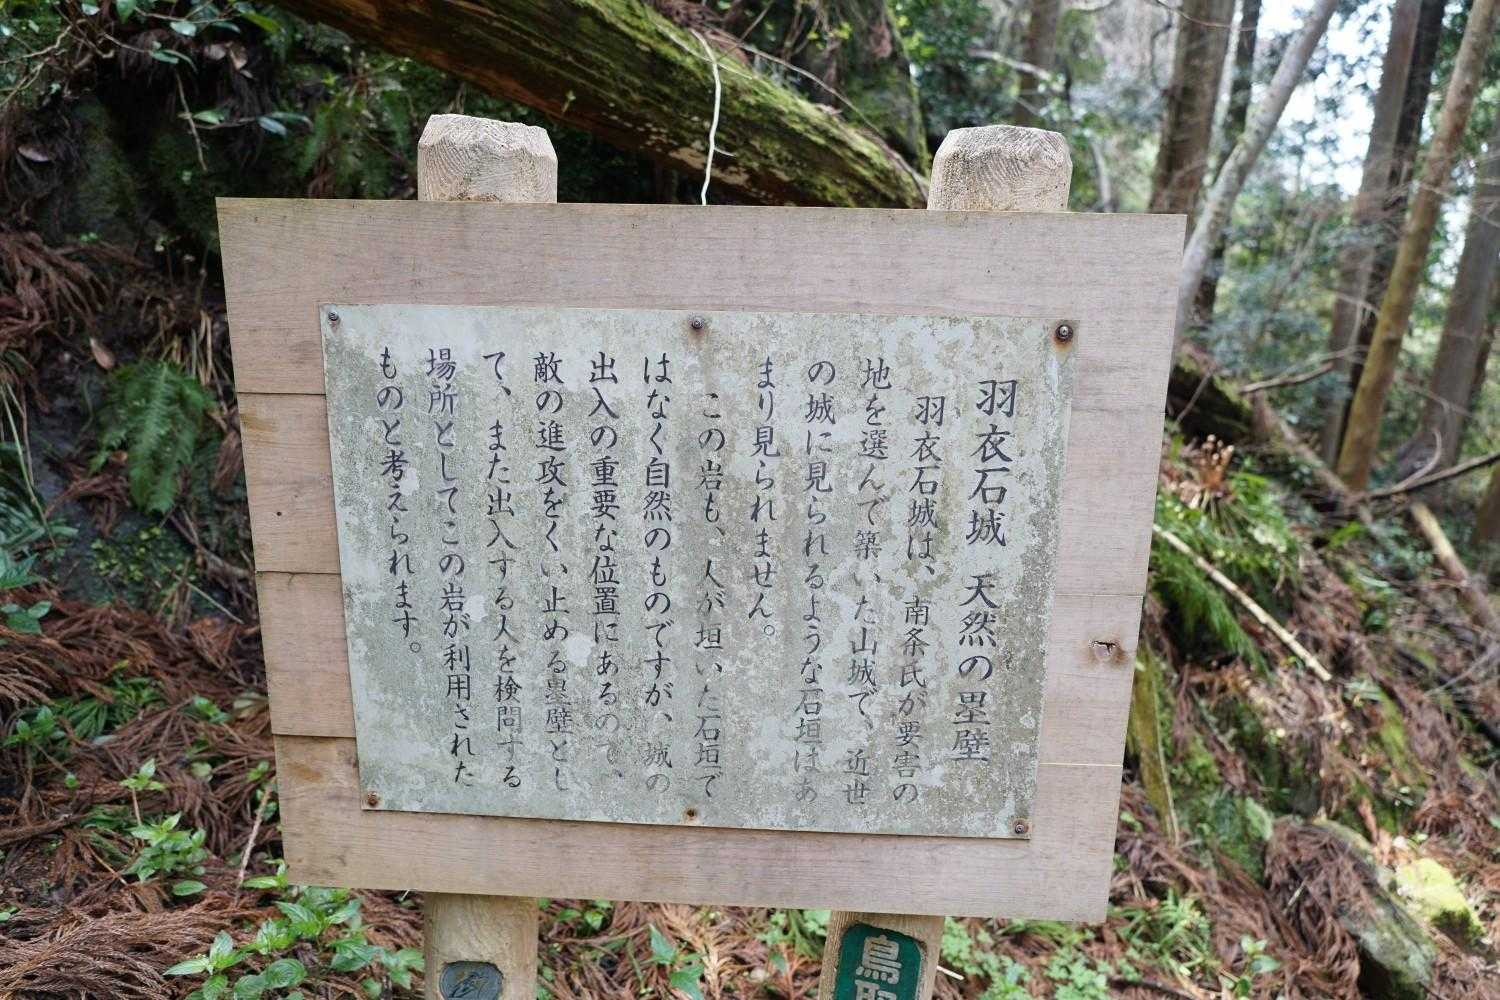 羽衣石城　天然の塁壁
羽衣石城は、南条氏が要害の
地を選んで築いた山城で、近世
の城に見られるような石垣はあ
まり見られません。
この岩も、人が垣いた石垣で
はなく自然のものですが、城の
出入の重要な位置にあるので、
敵の進攻をくい止める塁壁とし
て、また出入する人を検問する
場所としてこの岩が利用された
ものと考えられます。
鳥取